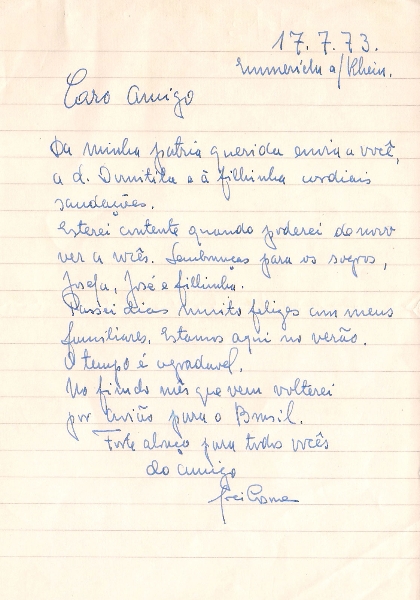 17.7.73.
Emmerich a/Rhein.
Caro Amigo
Da minha patria querida envio a você,
a d. Domitila e à filhinha cordiais
saudações.
Esterei contente quando poderei de novo
ver a vocês. Lembranças para os sogros,
Josefa, José e fillinha.
Passei dias muito felizes com meus
familiares. Estamos aqui no verão.
O tempo é agradavel.
No fim do mês que vem volterei
por avião para o Brasil.
Forte abraço para todos vocês
do amigo
Frei Cosme